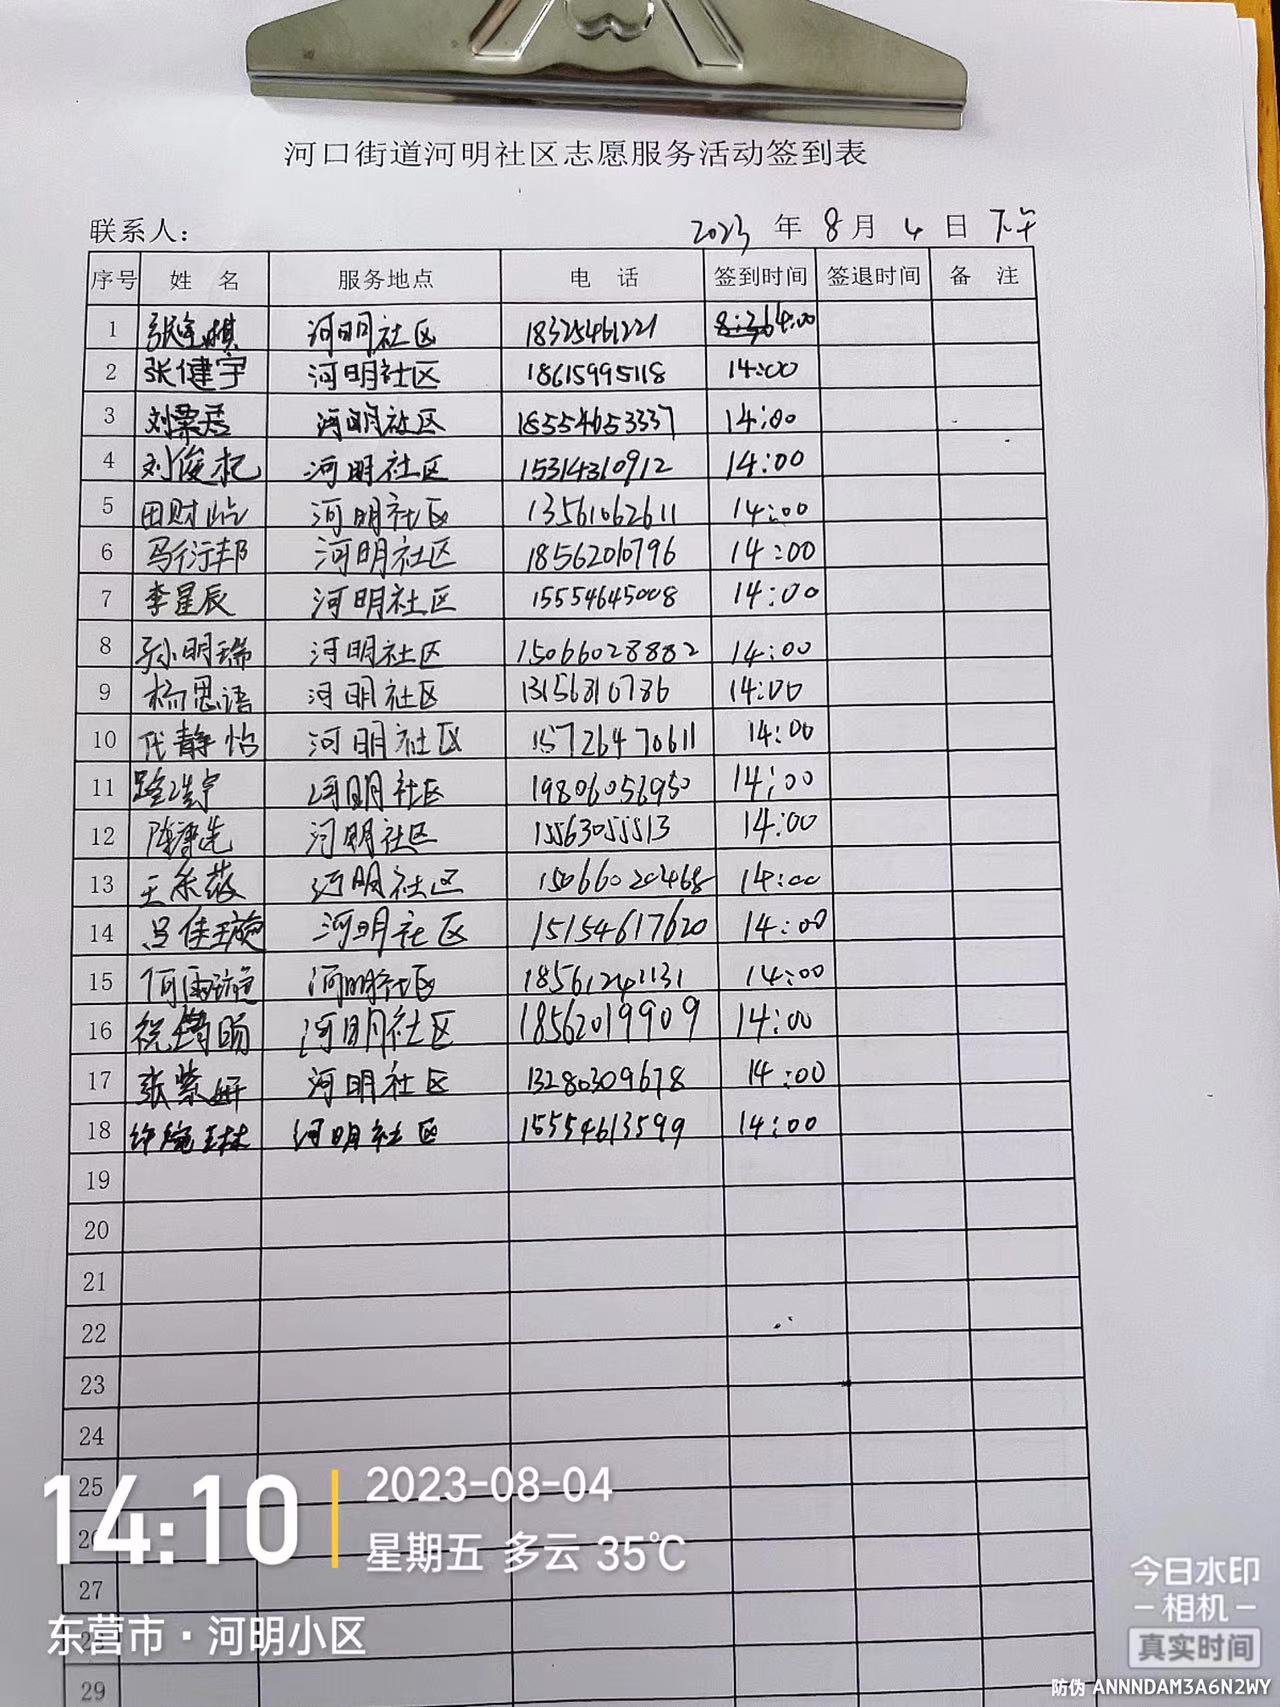 河口街道河明社区志愿服务活动签到表
联系人： 2023 年 8 月 4 日 下午
序号 姓 名 服务地点 电 话 签到时间 签退时间 备 注
1 河明社区 18325461221 14:00
2 张健宇 河明社区 18615995118 14:00
3 河明社区 18554653337 14:00
4 刘俊杞 河明社区 15314310912 14:00
5 河明社区 13561062611 14:00
6 马衍邦 河明社区 18562010796 14:00
7 李星辰 河明社区 15554645008 14:00
8 孙明瑞 河明社区 15066028882 14:00
9 杨思语 河明社区 13156810786 14:00
10 代静怡 河明社区 15726470611 14:00
11 河明社区 19806056950 14:00
12 河明社区 15563055513 14:00
13 河明社区 15066020468 14:00
14 吕佳璇 河明社区 15154617620 14:00
15 河明社区 14:00
16 河明社区 18562019909 14:00
17 张紫妍 河明社区 13280309678 14:00
18 河明社区 15554613599 14:00
19
20
21
22
23
24
25
26
27
29
14:10
2023-08-04
星期五 多云 35℃
东营市·河明小区
今日水印
-相机-
真实时间
防伪 ANNNDAM3A6N2WY